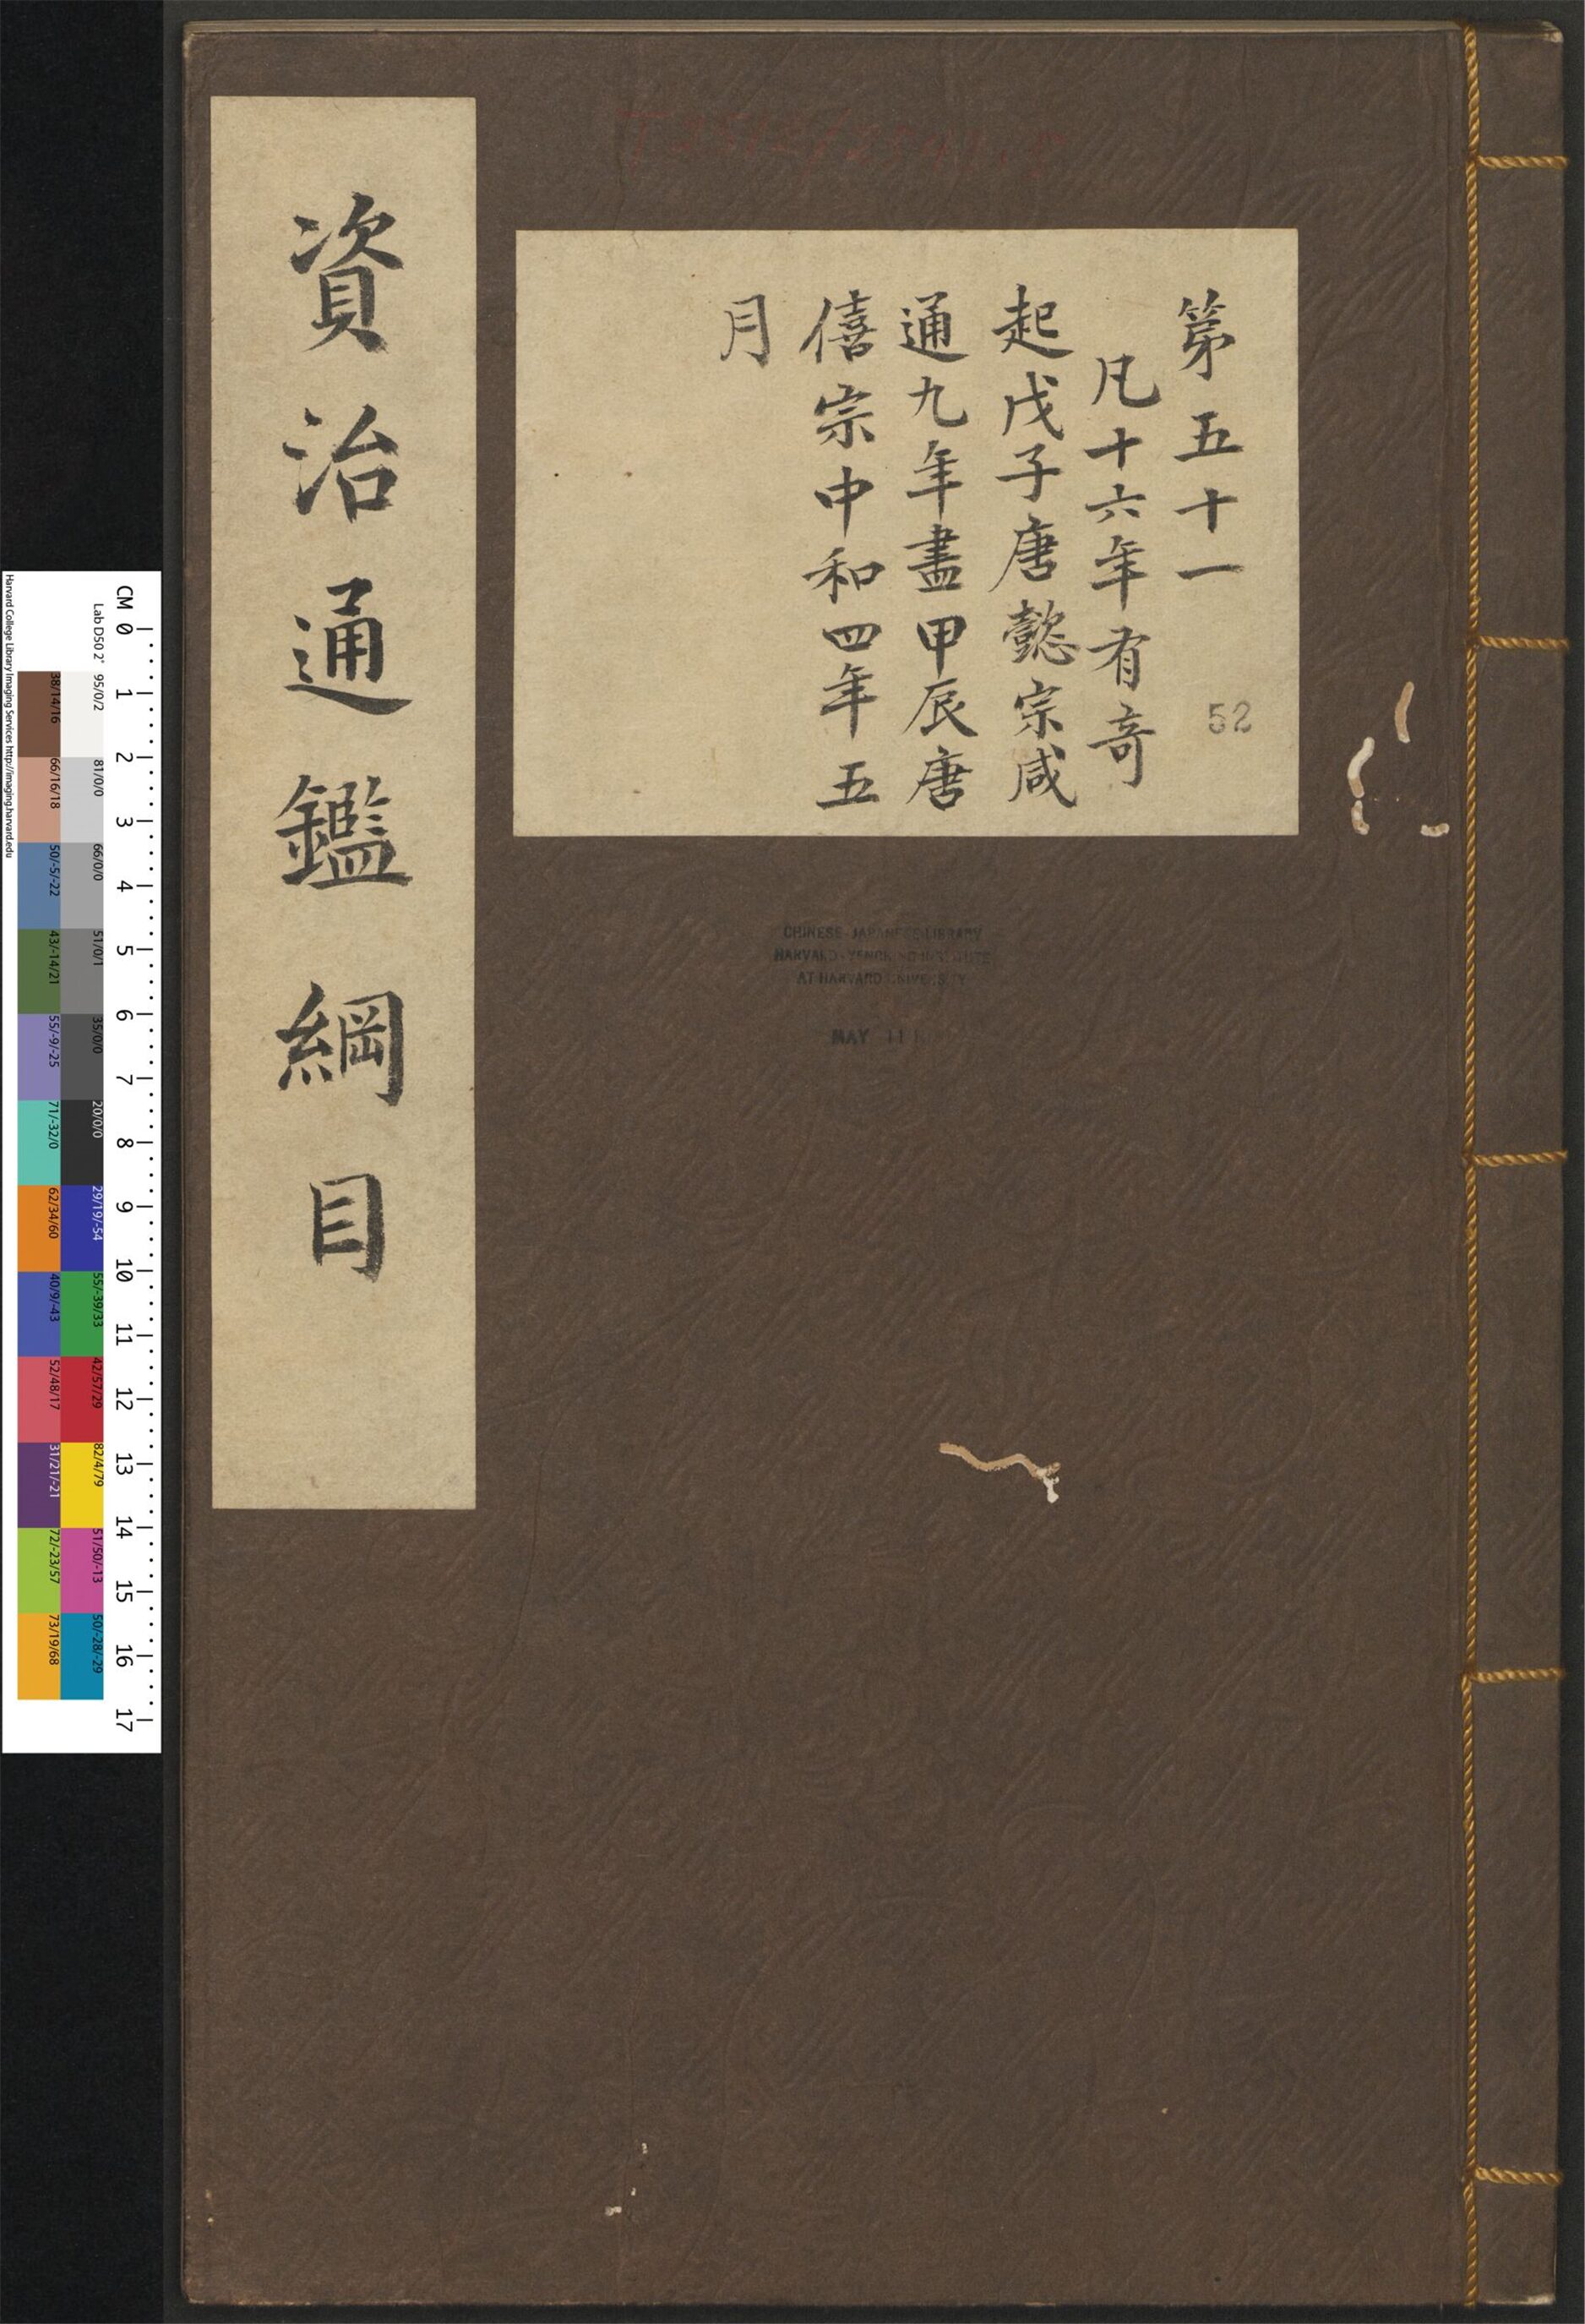 資治通鑑綱目
第五十一
凡十六年有奇
起戊子唐懿宗咸
通九年盡甲辰唐
僖宗中和四年五
月
52
CHINESE-JAPANESE LIBRARY
HARVARD-YENCHING INSTITUTE
AT HARVARD UNIVERSITY
MAY 11
CM 0 1 2 3 4 5 6 7 8 9 10 11 12 13 14 15 16 17
Lab D50 2° 95/0/2 81/0/0 66/0/0 51/0/1 35/0/0 20/0/0 29/19/-54 55/-39/33 42/57/29 82/4/79 51/50/-13 50/-28/-29
38/14/16 66/16/18 50/-5/-22 43/-14/21 55/-9/-25 71/-32/0 62/34/60 40/9/-43 52/48/17 31/21/-21 72/-23/57 73/19/68
Harvard College Library Imaging Services http://imaging.harvard.edu